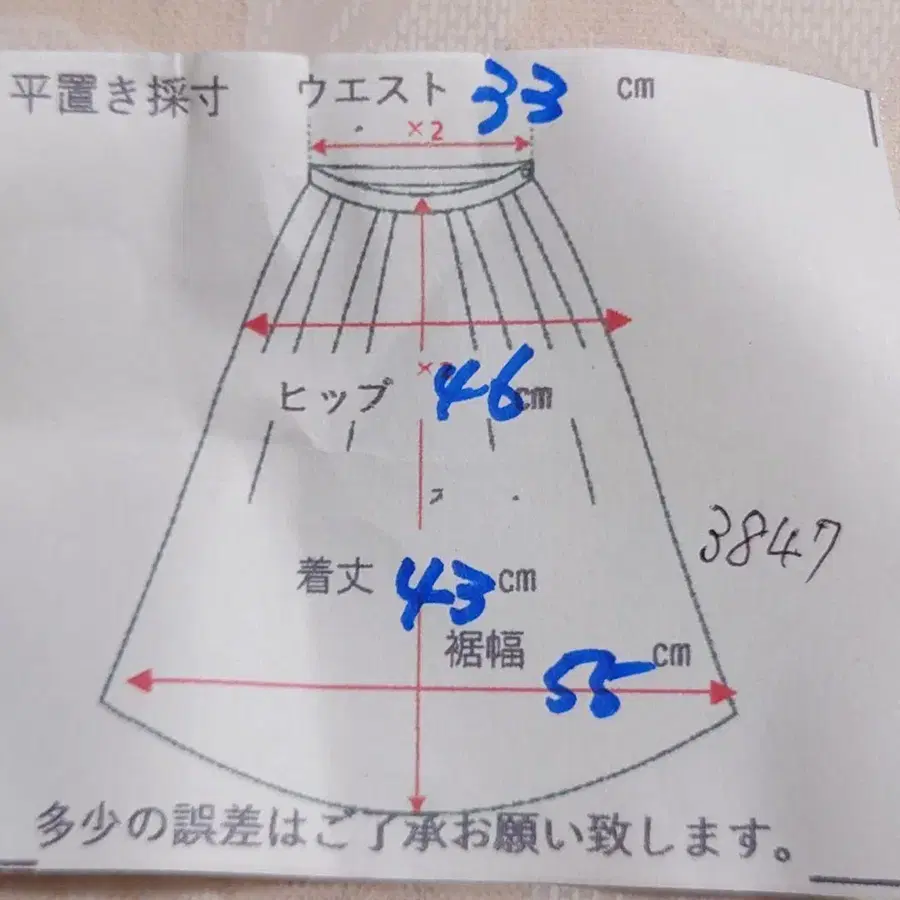 平置き採寸 ウエスト 33 cm
×2
×
ヒップ 46 cm
3847
着丈 43 cm
裾幅 55 cm
多少の誤差はご了承お願い致します。